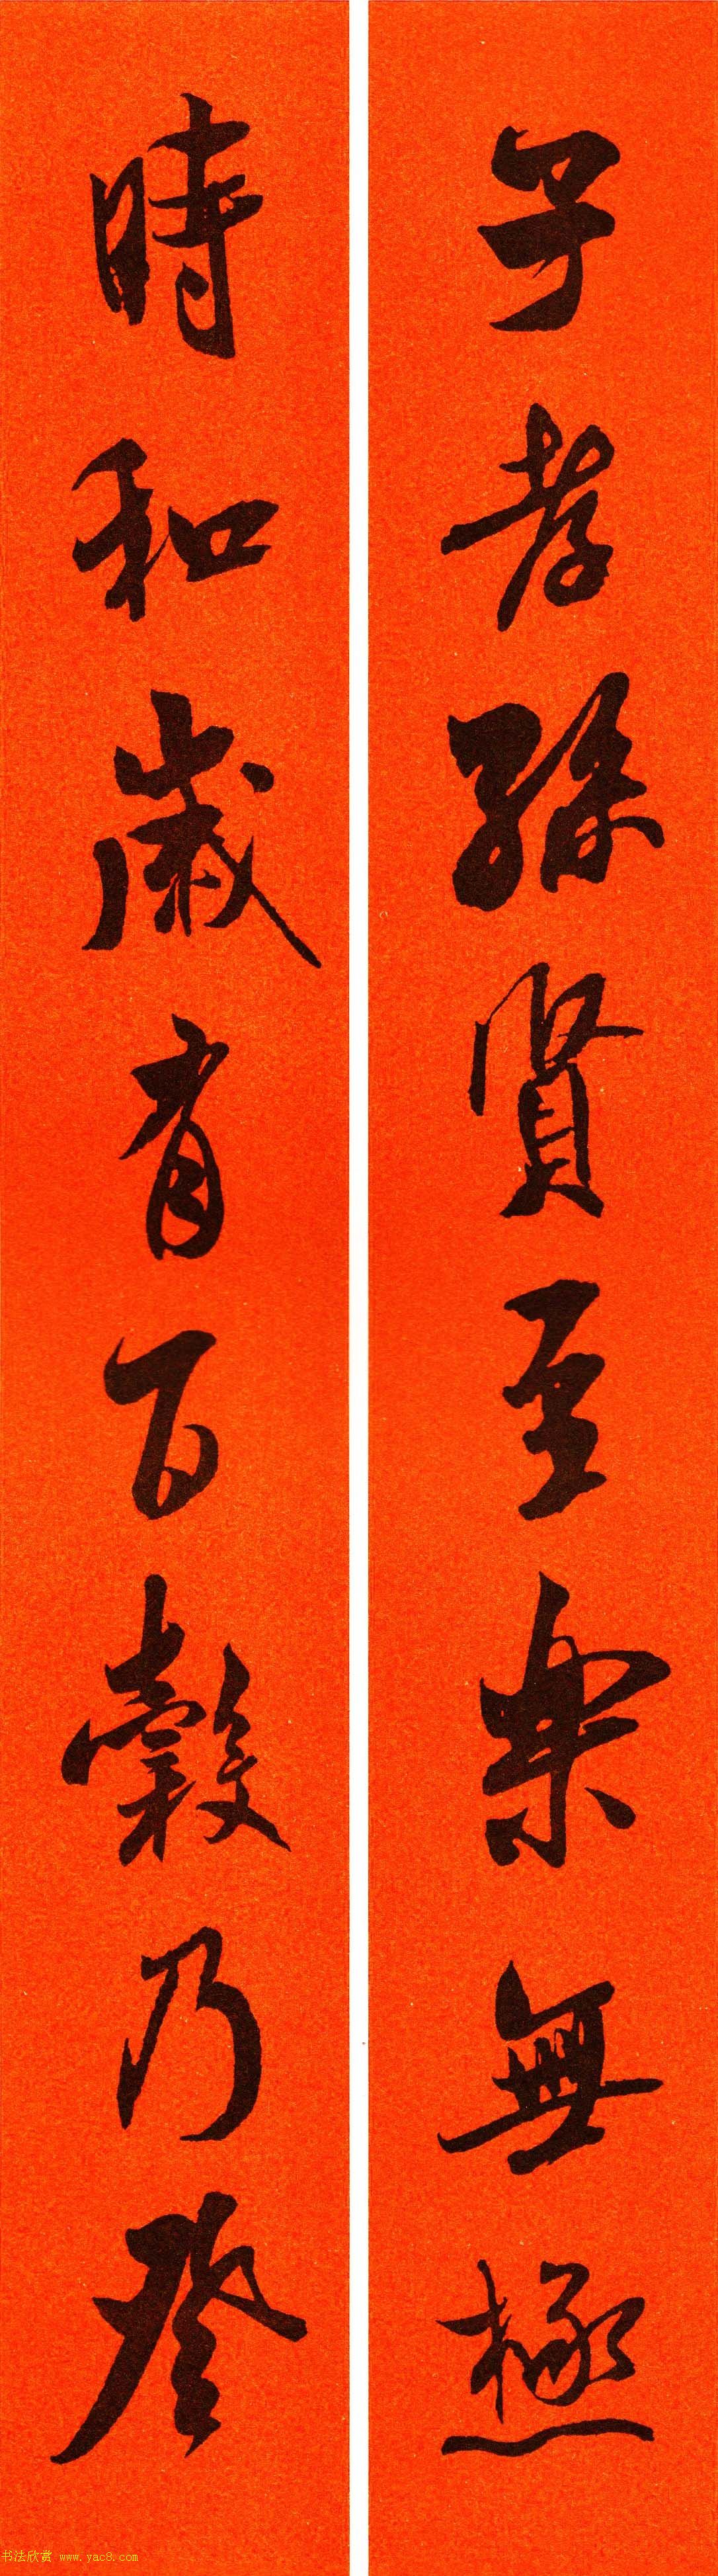 子孝孫賢至樂無極
時和歲有百穀乃登
书法欣赏 www.yac8.com